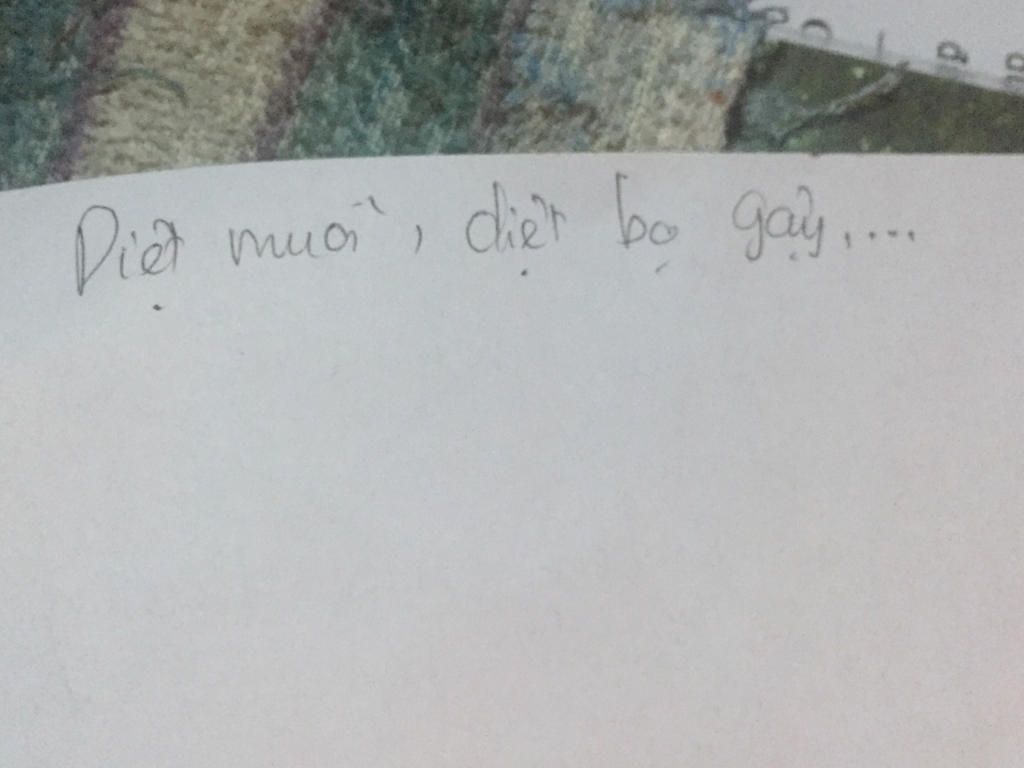 Diệt muỗi, diệt bọ gậy,....